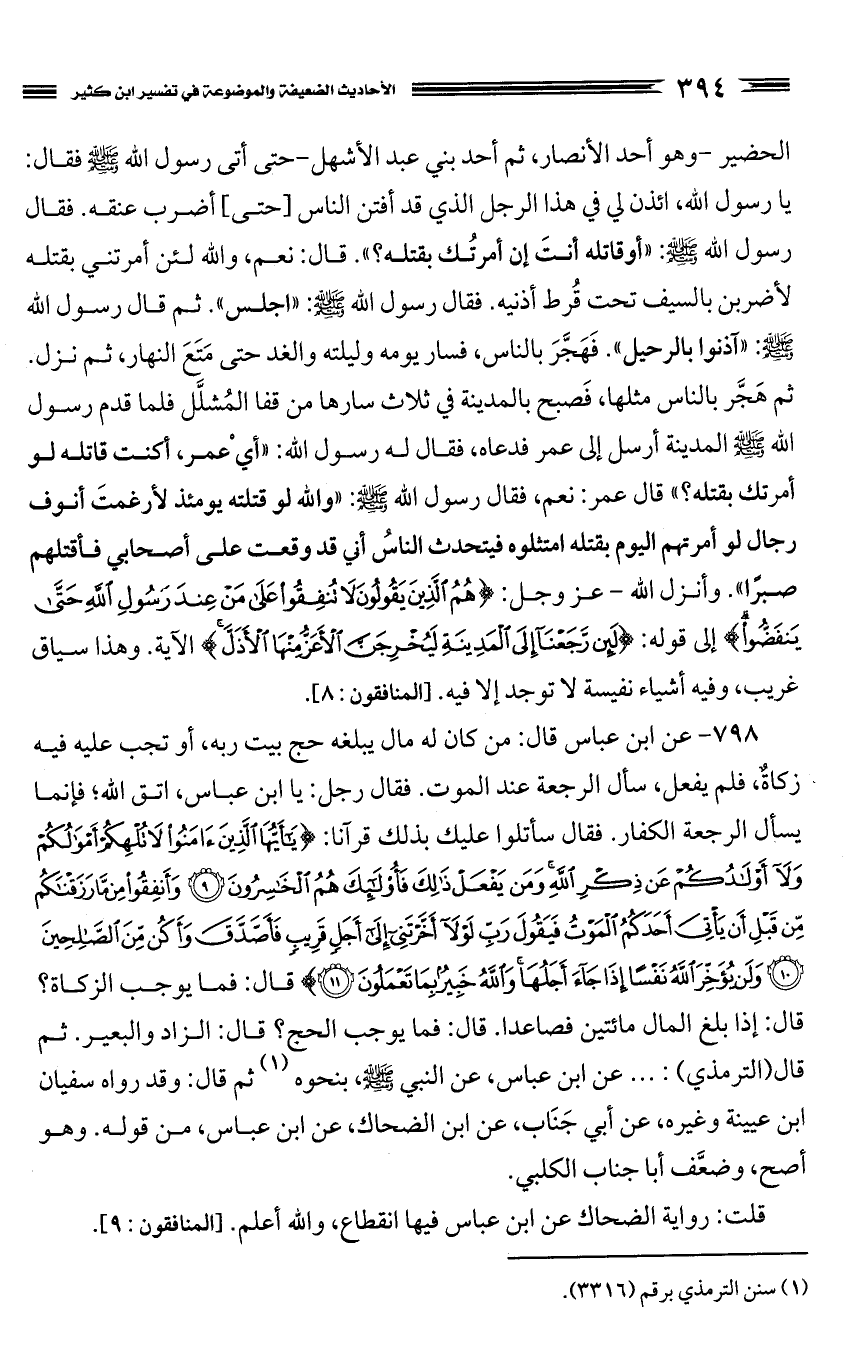 ٣٩٤ الأحاديث الضعيفة والموضوعة في تفسير ابن كثير
الحضير -وهو أحد الأنصار، ثم أحد بني عبد الأشهل-حتى أتى رسول الله ﷺ فقـال:
يا رسول الله، ائذن لي في هذا الرجل الذي قد أفتن الناس [حتـى] أضـرب عنقـه. فقـال
رسول الله ﷺ: «أوقاتله أنـتَ إن أمرتُـك بقتلـه؟». قـال: نعـم، والله لـئن أمرتنـي بقتلـه
لأضربن بالسيف تحت قُرط أذنيه. فقال رسول الله ﷺ: «اجلـس». ثـم قـال رسـول الله
ﷺ: «آذنوا بالرحيل». فَهَجَّرَ بالناس، فسار يومه وليلته والغد حتى مَتَعَ النهار، ثـم نـزل.
ثم هَجَّر بالناس مثلها، فَصبح بالمدينة في ثلاث سارها من قفا المُشلَّل فلما قدم رسـول
الله ﷺ المدينة أرسل إلى عمر فدعاه، فقـال لـه رسـول الله: «أيْ عمـر، أكنـت قاتلـه لـو
أمرتك بقتله؟» قال عمر: نعم، فقال رسول الله ﷺ: «والله لو قتلته يومئذ لأرغمتَ أنـوف
رجال لو أمرتهم اليوم بقتله امتثلوه فيتحدث الناسُ أني قد وقعـت علـى أصـحابي فـأقتلهم
صبـرًا». وأنـزل الله - عـز وجـل: ﴿هُمُ ٱلَّذِينَ يَقُولُونَ لَا تُنفِقُوا۟ عَلَىٰ مَنْ عِندَ رَسُولِ ٱللَّهِ حَتَّىٰ
يَنفَضُّوا۟ۗ﴾ إلى قوله: ﴿لَئِن رَّجَعْنَآ إِلَى ٱلْمَدِينَةِ لَيُخْرِجَنَّ ٱلْأَعَزُّ مِنْهَا ٱلْأَذَلَّۚ﴾ الآية. وهذا سـياق
غريب، وفيه أشياء نفيسة لا توجد إلا فيه. [المنافقون : ٨].
٧٩٨- عن ابن عباس قال: من كان له مال يبلغه حج بيت ربه، أو تجب عليه فيـه
زكاةٌ، فلم يفعل، سأل الرجعة عند الموت. فقال رجل: يا ابن عبـاس، اتـق الله؛ فإنمـا
يسأل الرجعة الكفار. فقال سأتلوا عليك بذلك قرآنا: ﴿يَٰٓأَيُّهَا ٱلَّذِينَ ءَامَنُوا۟ لَا تُلْهِكُمْ أَمْوَٰلُكُمْ
وَلَآ أَوْلَٰدُكُمْ عَن ذِكْرِ ٱللَّهِۚ وَمَن يَفْعَلْ ذَٰلِكَ فَأُو۟لَٰٓئِكَ هُمُ ٱلْخَٰسِرُونَ ٩ وَأَنفِقُوا۟ مِن مَّا رَزَقْنَٰكُم
مِّن قَبْلِ أَن يَأْتِىَ أَحَدَكُمُ ٱلْمَوْتُ فَيَقُولَ رَبِّ لَوْلَآ أَخَّرْتَنِىٓ إِلَىٰٓ أَجَلٍ قَرِيبٍ فَأَصَّدَّقَ وَأَكُن مِّنَ ٱلصَّٰلِحِينَ
١٠ وَلَن يُؤَخِّرَ ٱللَّهُ نَفْسًا إِذَا جَآءَ أَجَلُهَاۚ وَٱللَّهُ خَبِيرٌۢ بِمَا تَعْمَلُونَ ١١﴾ قـال: فمـا يوجـب الزكـاة؟
قال: إذا بلغ المال مائتين فصاعدا. قال: فما يوجب الحج؟ قال: الـزاد والبعيـر. ثـم
قال(الترمذي) : ... عن ابن عباس، عن النبي ﷺ، بنحوه (١) ثم قال: وقد رواه سفيان
ابن عيينة وغيره، عن أبي جَنَاب، عن ابن الضحاك، عن ابن عبـاس، مـن قولـه. وهـو
أصح، وضعَّف أبا جناب الكلبي.
قلت: رواية الضحاك عن ابن عباس فيها انقطاع، والله أعلم. [المنافقون : ٩].
(١) سنن الترمذي برقم (٣٣١٦).